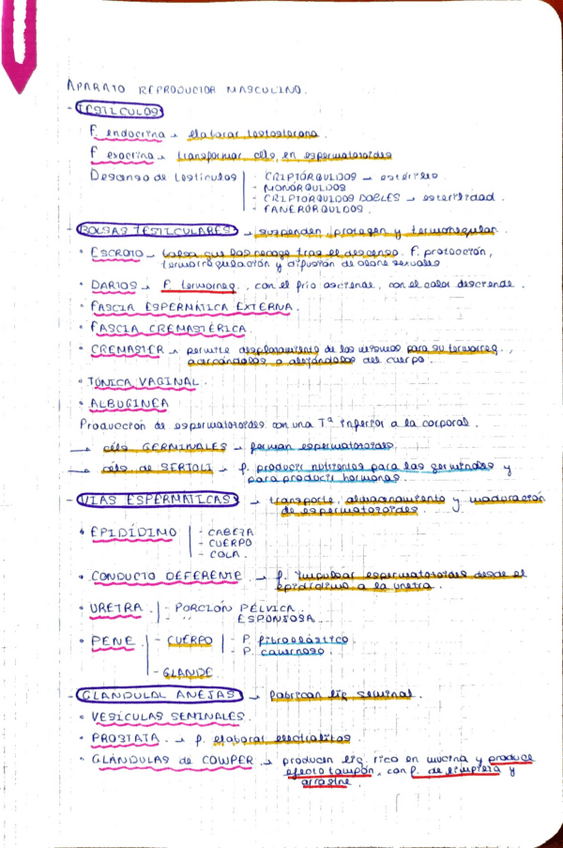 APARATO REPRODUCTOR MASCULINO.
- TESTICULOS
F. endocrina → elaborar testosterona.
F. exocrina → transformar céls. en espermatozoides
Descenso de testículos | - CRIPTÓRQUIDOS → estériles.
- MONÓRQUIDOS
- CRIPTORQUIDOS DOBLES → esterilidad
- FANERÓRQUIDOS.
- BOLSAS TESTICULARES → suspenden, protegen y termoregulan.
• ESCROTO → bolsa que los recoge tras el descenso. F. protección,
termorregulación y difusión de olores sexuales
• DARTOS → F. termorreg., con el frío asciende, con el calor desciende.
• FASCIA ESPERMÁTICA EXTERNA.
• FASCIA CREMASTÉRICA.
• CREMASTER → permite desplazamiento de los mismos para su termorreg.,
acercándolos o alejándolos del cuerpo.
• TÚNICA VAGINAL.
• ALBUGINEA
Producción de espermatozoides con una Tª inferior a la corporal.
→ céls GERMINALES → forman espermatozoides.
→ céls de SERTOLI → f. producir nutrientes para las germinales y
para producir hormonas.
- VIAS ESPERMATICAS → transporte, almacenamiento y maduración
de espermatozoides.
• EPIDÍDIMO | - CABEZA
- CUERPO
- COLA.
• CONDUCTO DEFERENTE → f. impulsar espermatozoides desde el
epidídimo a la uretra.
• URETRA. | - PORCIÓN PÉLVICA.
- " ESPONJOSA.
• PENE | - CUERPO | - P. fibroelástico
- P. cavernoso.
- GLANDE.
- GLANDULAS ANEJAS → fabrican líq seminal.
• VESÍCULAS SEMINALES.
• PROSTATA. → f. elaborar electrolitos.
• GLÁNDULAS de COWPER → producen líq. rico en mucina y produce
efecto tampón, con f. de limpieza y
arrastre.